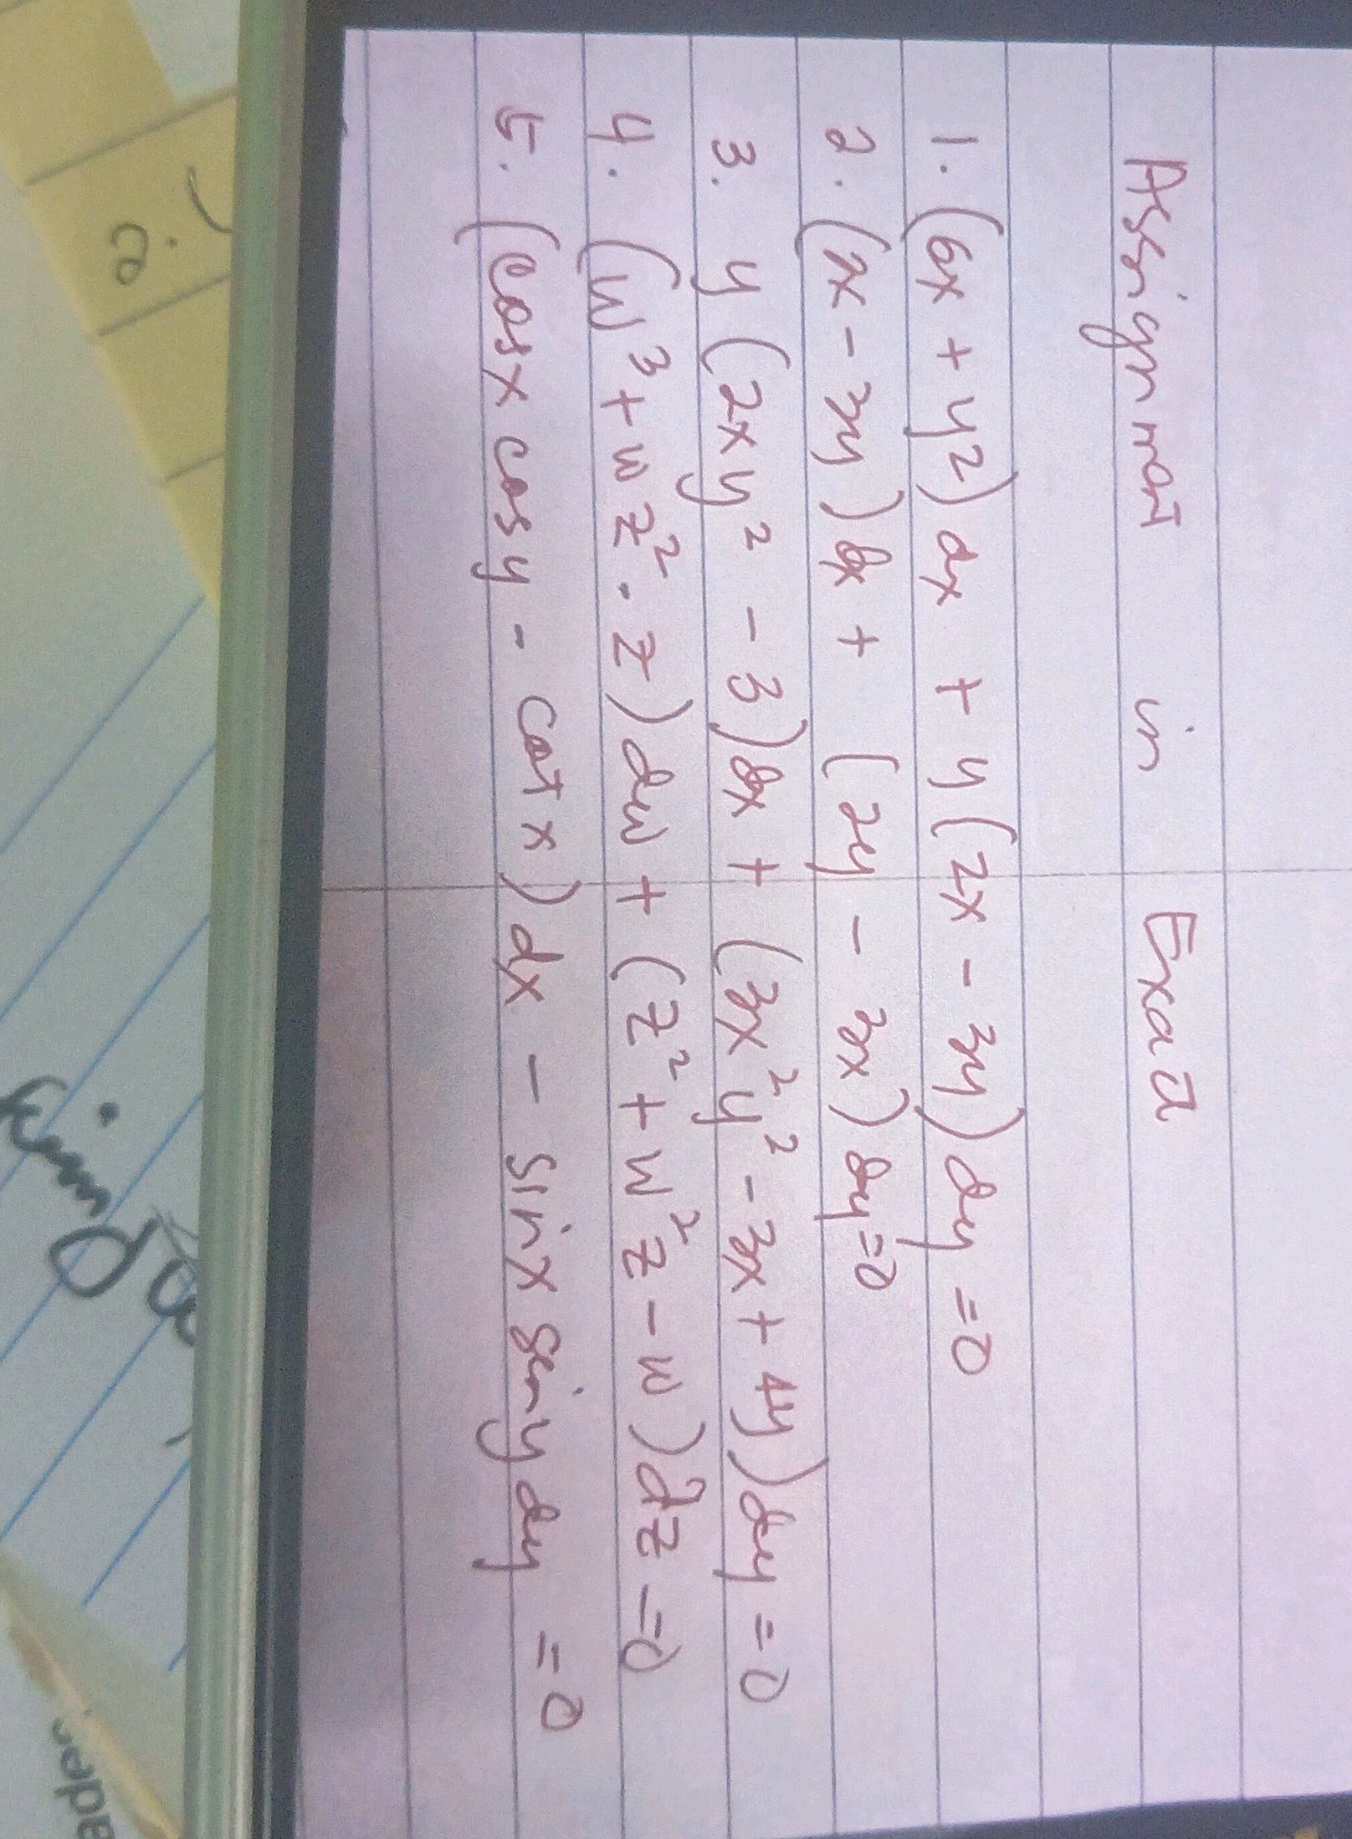 Assignment in Exact
1. (6x + y²) dx + y(2x - 3y) dy = 0
2. (2x - 3y) dx + (2y - 3x) dy = 0
3. y (2xy² - 3) dx + (3x²y² - 3x + 4y) dy = 0
4. (w³ + wz² - z) dw + (z² + w²z - w) dz = 0
5. (cosx cosy - cot x) dx - sinx siny dy = 0